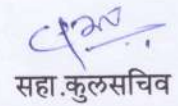 सहा.कुलसचिव